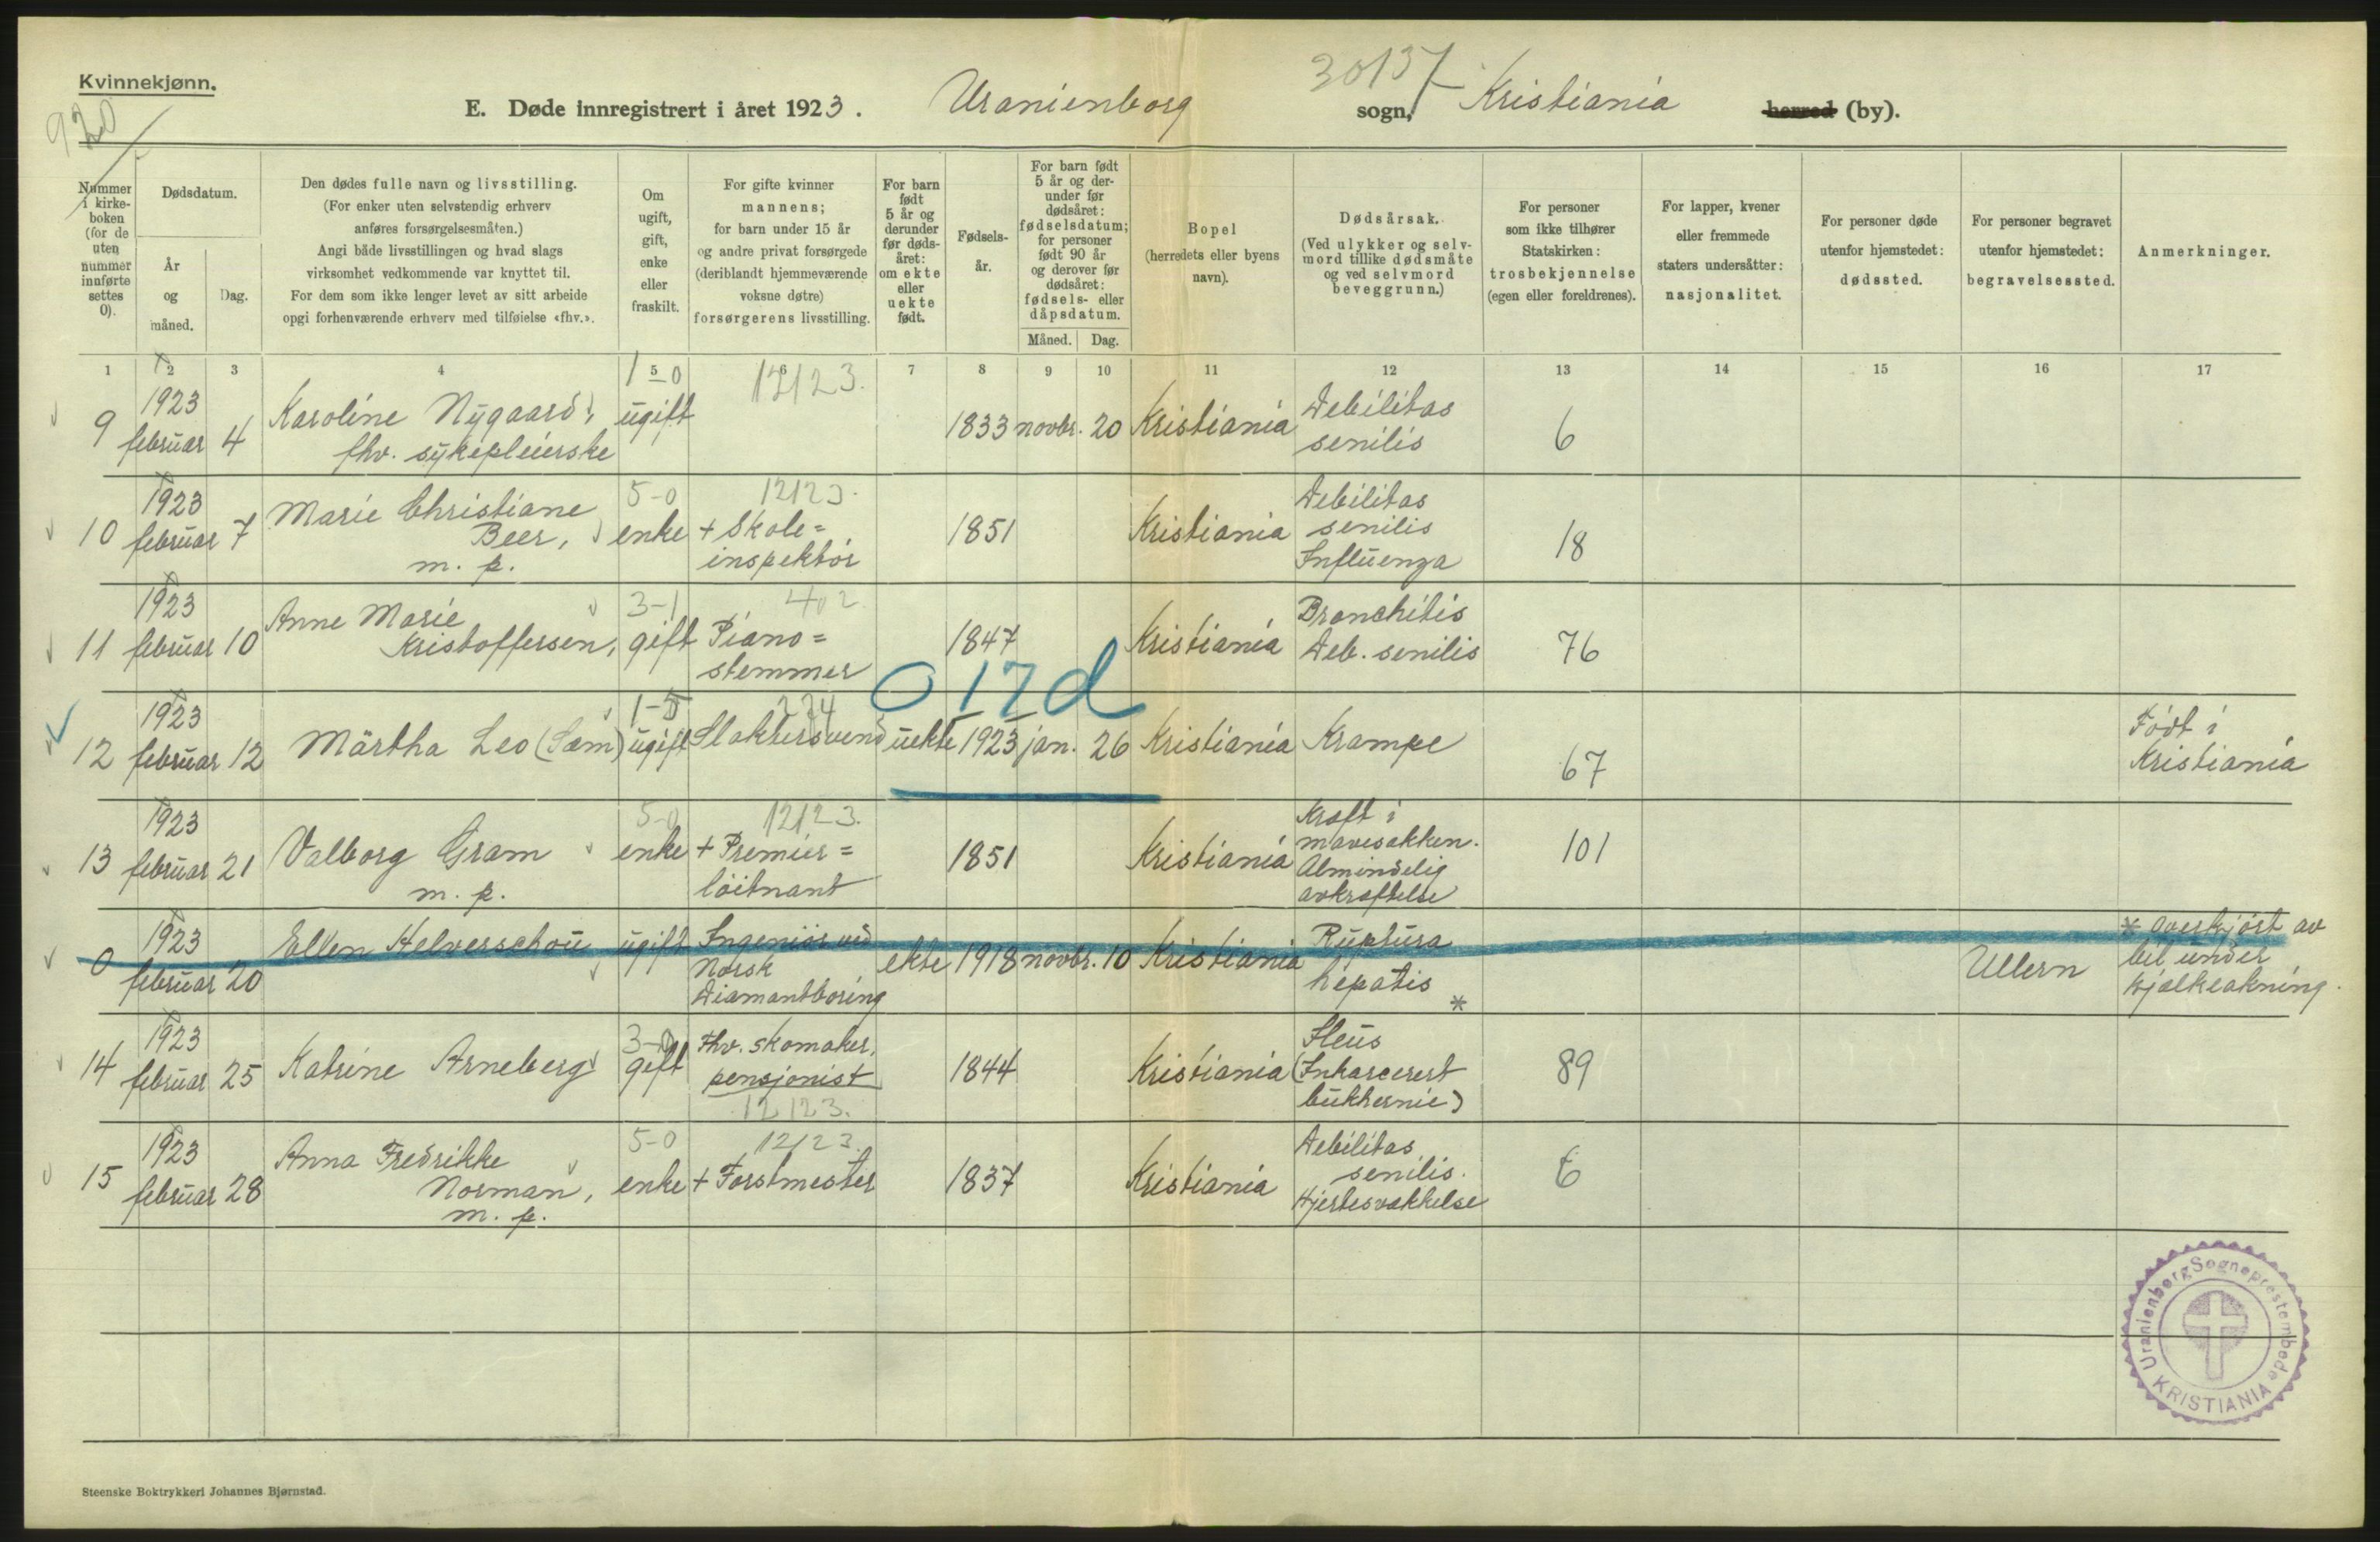 Kvinnekjønn.
920
E. Døde innregistrert i året 1923. Uranienborg sogn, Kristiania herred (by).
30137
Nummer i kirkeboken (for de uten nummer innførte settes 0).
Dødsdatum.
År og måned.
Dag.
Den dødes fulle navn og livsstilling.
(For enker uten selvstendig erhverv
anføres forsørgelsesmåten.)
Angi både livsstillingen og hvad slags
virksomhet vedkommende var knyttet til.
For dem som ikke lenger levet av sitt arbeide
opgi forhenværende erhverv med tilføielse «fhv.».
Om
ugift,
gift,
enke
eller
fraskilt.
For gifte kvinner
mannens;
for barn under 15 år
og andre privat forsørgede
(deriblandt hjemmeværende
voksne døtre)
forsørgerens livsstilling.
For barn
født
5 år og
derunder
før døds-
året:
om ekte
eller
uekte
født.
Fødsels-
år.
For barn født
5 år og der-
under før
dødsåret:
fødselsdatum;
for personer
født 90 år
og derover før
dødsåret:
fødsels- eller
dåpsdatum.
Måned. Dag.
Bopel
(herredets eller byens
navn).
Dødsårsak.
(Ved ulykker og selv-
mord tillike dødsmåte
og ved selvmord
beveggrunn.)
For personer
som ikke tilhører
Statskirken:
trosbekjennelse
(egen eller foreldrenes).
For lapper, kvener
eller fremmede
staters undersåtter:
nasjonalitet.
For personer døde
utenfor hjemstedet:
dødssted.
For personer begravet
utenfor hjemstedet:
begravelsessted.
Anmerkninger.
1 2 3 4 5 6 7 8 9 10 11 12 13 14 15 16 17
1-0 12123.
9 1923 februar 4 Karoline Nygaard, fhv. sykepleierske ugift 1833 novbr. 20 Kristiania Debilitas senilis 6
5-0 12123.
10 1923 februar 7 Marie Christiane Beer, m. p. enke + Skole= inspektør 1851 Kristiania Debilitas senilis Influenza 18
3-1 402
11 1923 februar 10 Anne Marie Kristoffersen, gift Piano= stemmer 1847 Kristiania Bronchitis Deb. senilis 76
017d
1-5 224
12 1923 februar 12 Märtha Leo (Sæm) ugift Slaktersvend uekte 1923 jan. 26 Kristiania Krampe 67 Født i Kristiania
5-0 12123.
13 1923 februar 21 Valborg Gram m. p. enke + Premier= løitnant 1851 Kristiania Kræft i mavesækken. Almindelig avkræftelse 101
0 1923 februar 20 Ellen Helverschou ugift Ingeniør ved Norsk Diamantboring ekte 1918 novbr. 10 Kristiania Ruptura hepatis * Ullern * overkjørt av bil under kjælkeakning.
3-0
14 1923 februar 25 Katrine Arneberg gift Fhv. skomaker, pensjonist 1844 Kristiania Ileus (Inkarcerert bukhernie) 89
12123.
5-0 12123
15 1923 februar 28 Anna Fredrikke Norman, m. p. enke + Forstmester 1837 Kristiania Debilitas senilis. Hjertesvækkelse 6
Uranienborg Sogneprestembede
KRISTIANIA
Steenske Boktrykkeri Johannes Bjørnstad.